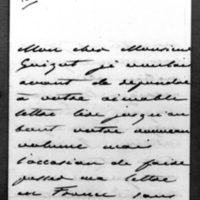 Mon cher Monsieur
Guizot je voulais
avant de répondre
à votre aimable
lettre lire jusqu'au
bout votre nouveau
volume mais
l'occasion de faire
passer ma lettre
en France sans